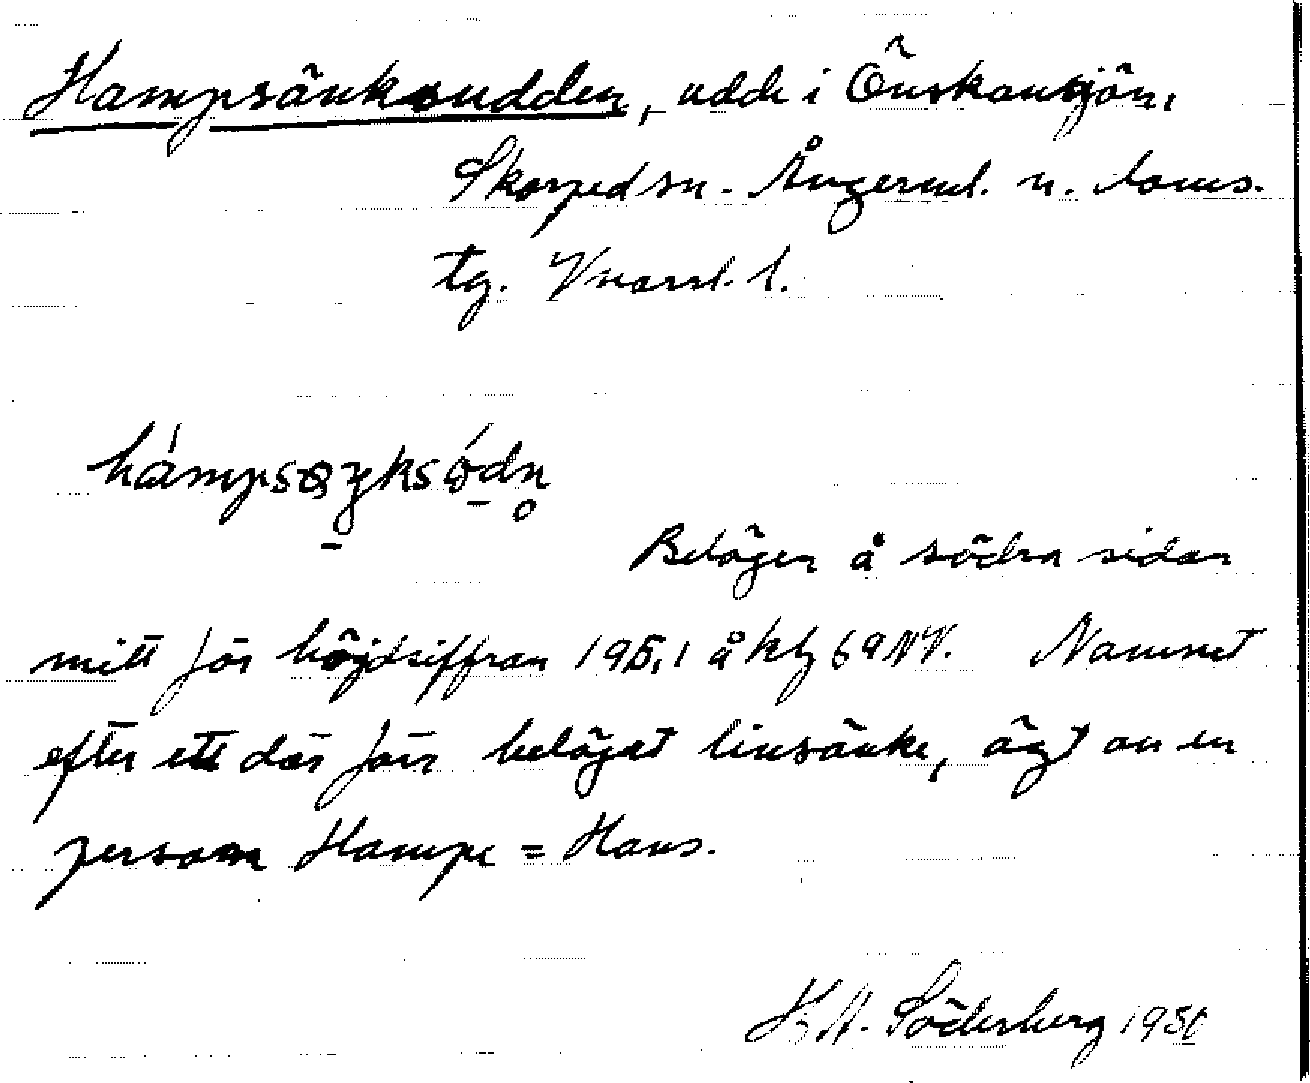 Hampsänksudden, udde i Önskansjön,
Skorped sn. Ångerml. n. doms.
tg. Vnorrl. l.
Belägen å södra sidan
mitt för höjdsiffran 195,1 å kbl 69 NV. Namnet
efter ett där förr beläget linsänke, ägt av en
person Hampe = Hans.
K. A. Söderberg 1950